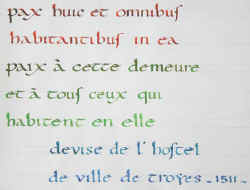 pax huic et omnibus
habitantibus in ea
paix à cette demeure
et à tous ceux qui
habitent en elle
devise de l'hostel
de ville de troyes - 1511 -